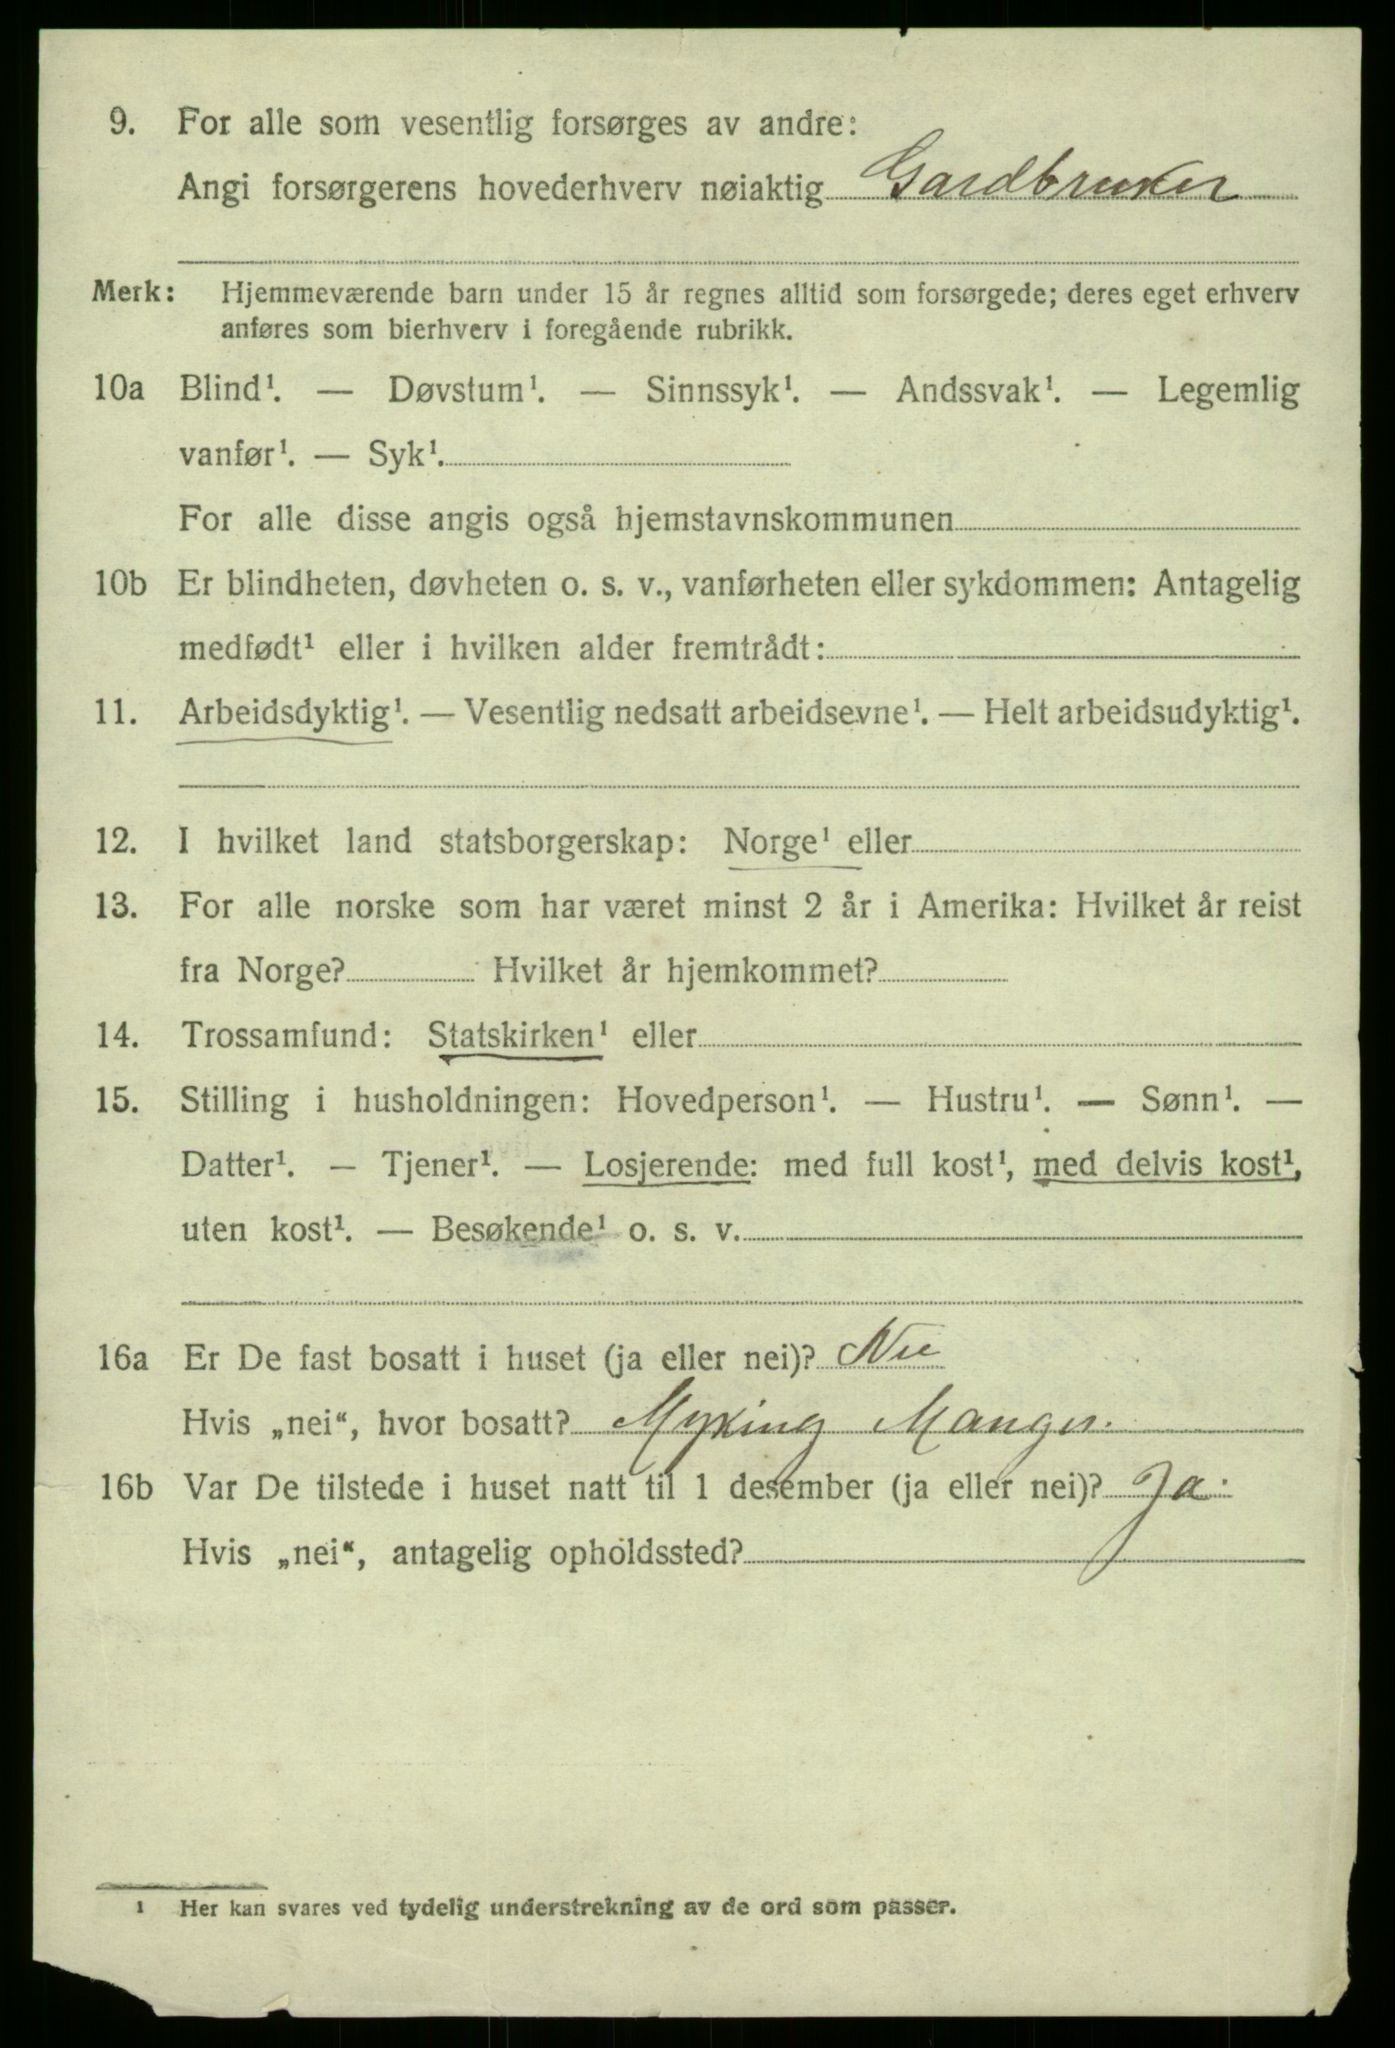 9. For alle som vesentlig forsørges av andre:
Angi forsørgerens hovederhverv nøiaktig Gardbruker
Merk: Hjemmeværende barn under 15 år regnes alltid som forsørgede; deres eget erhverv
anføres som bierhverv i foregående rubrikk.
10a Blind¹. — Døvstum¹. — Sinnssyk¹. — Andssvak¹. — Legemlig
vanfør¹. — Syk¹.
For alle disse angis også hjemstavnskommunen
10b Er blindheten, døvheten o. s. v., vanførheten eller sykdommen: Antagelig
medfødt¹ eller i hvilken alder fremtrådt:
11. Arbeidsdyktig¹. — Vesentlig nedsatt arbeidsevne¹. — Helt arbeidsudyktig¹.
12. I hvilket land statsborgerskap: Norge¹ eller
13. For alle norske som har været minst 2 år i Amerika: Hvilket år reist
fra Norge? Hvilket år hjemkommet?
14. Trossamfund: Statskirken¹ eller
15. Stilling i husholdningen: Hovedperson¹. — Hustru¹. — Sønn¹. —
Datter¹. — Tjener¹. — Losjerende: med full kost¹, med delvis kost¹,
uten kost¹. — Besøkende¹ o. s. v.
16a Er De fast bosatt i huset (ja eller nei)? Nei
Hvis „nei“, hvor bosatt? Myking Manger.
16b Var De tilstede i huset natt til 1 desember (ja eller nei)? Ja.
Hvis „nei“, antagelig opholdssted?
¹ Her kan svares ved tydelig understrekning av de ord som passer.